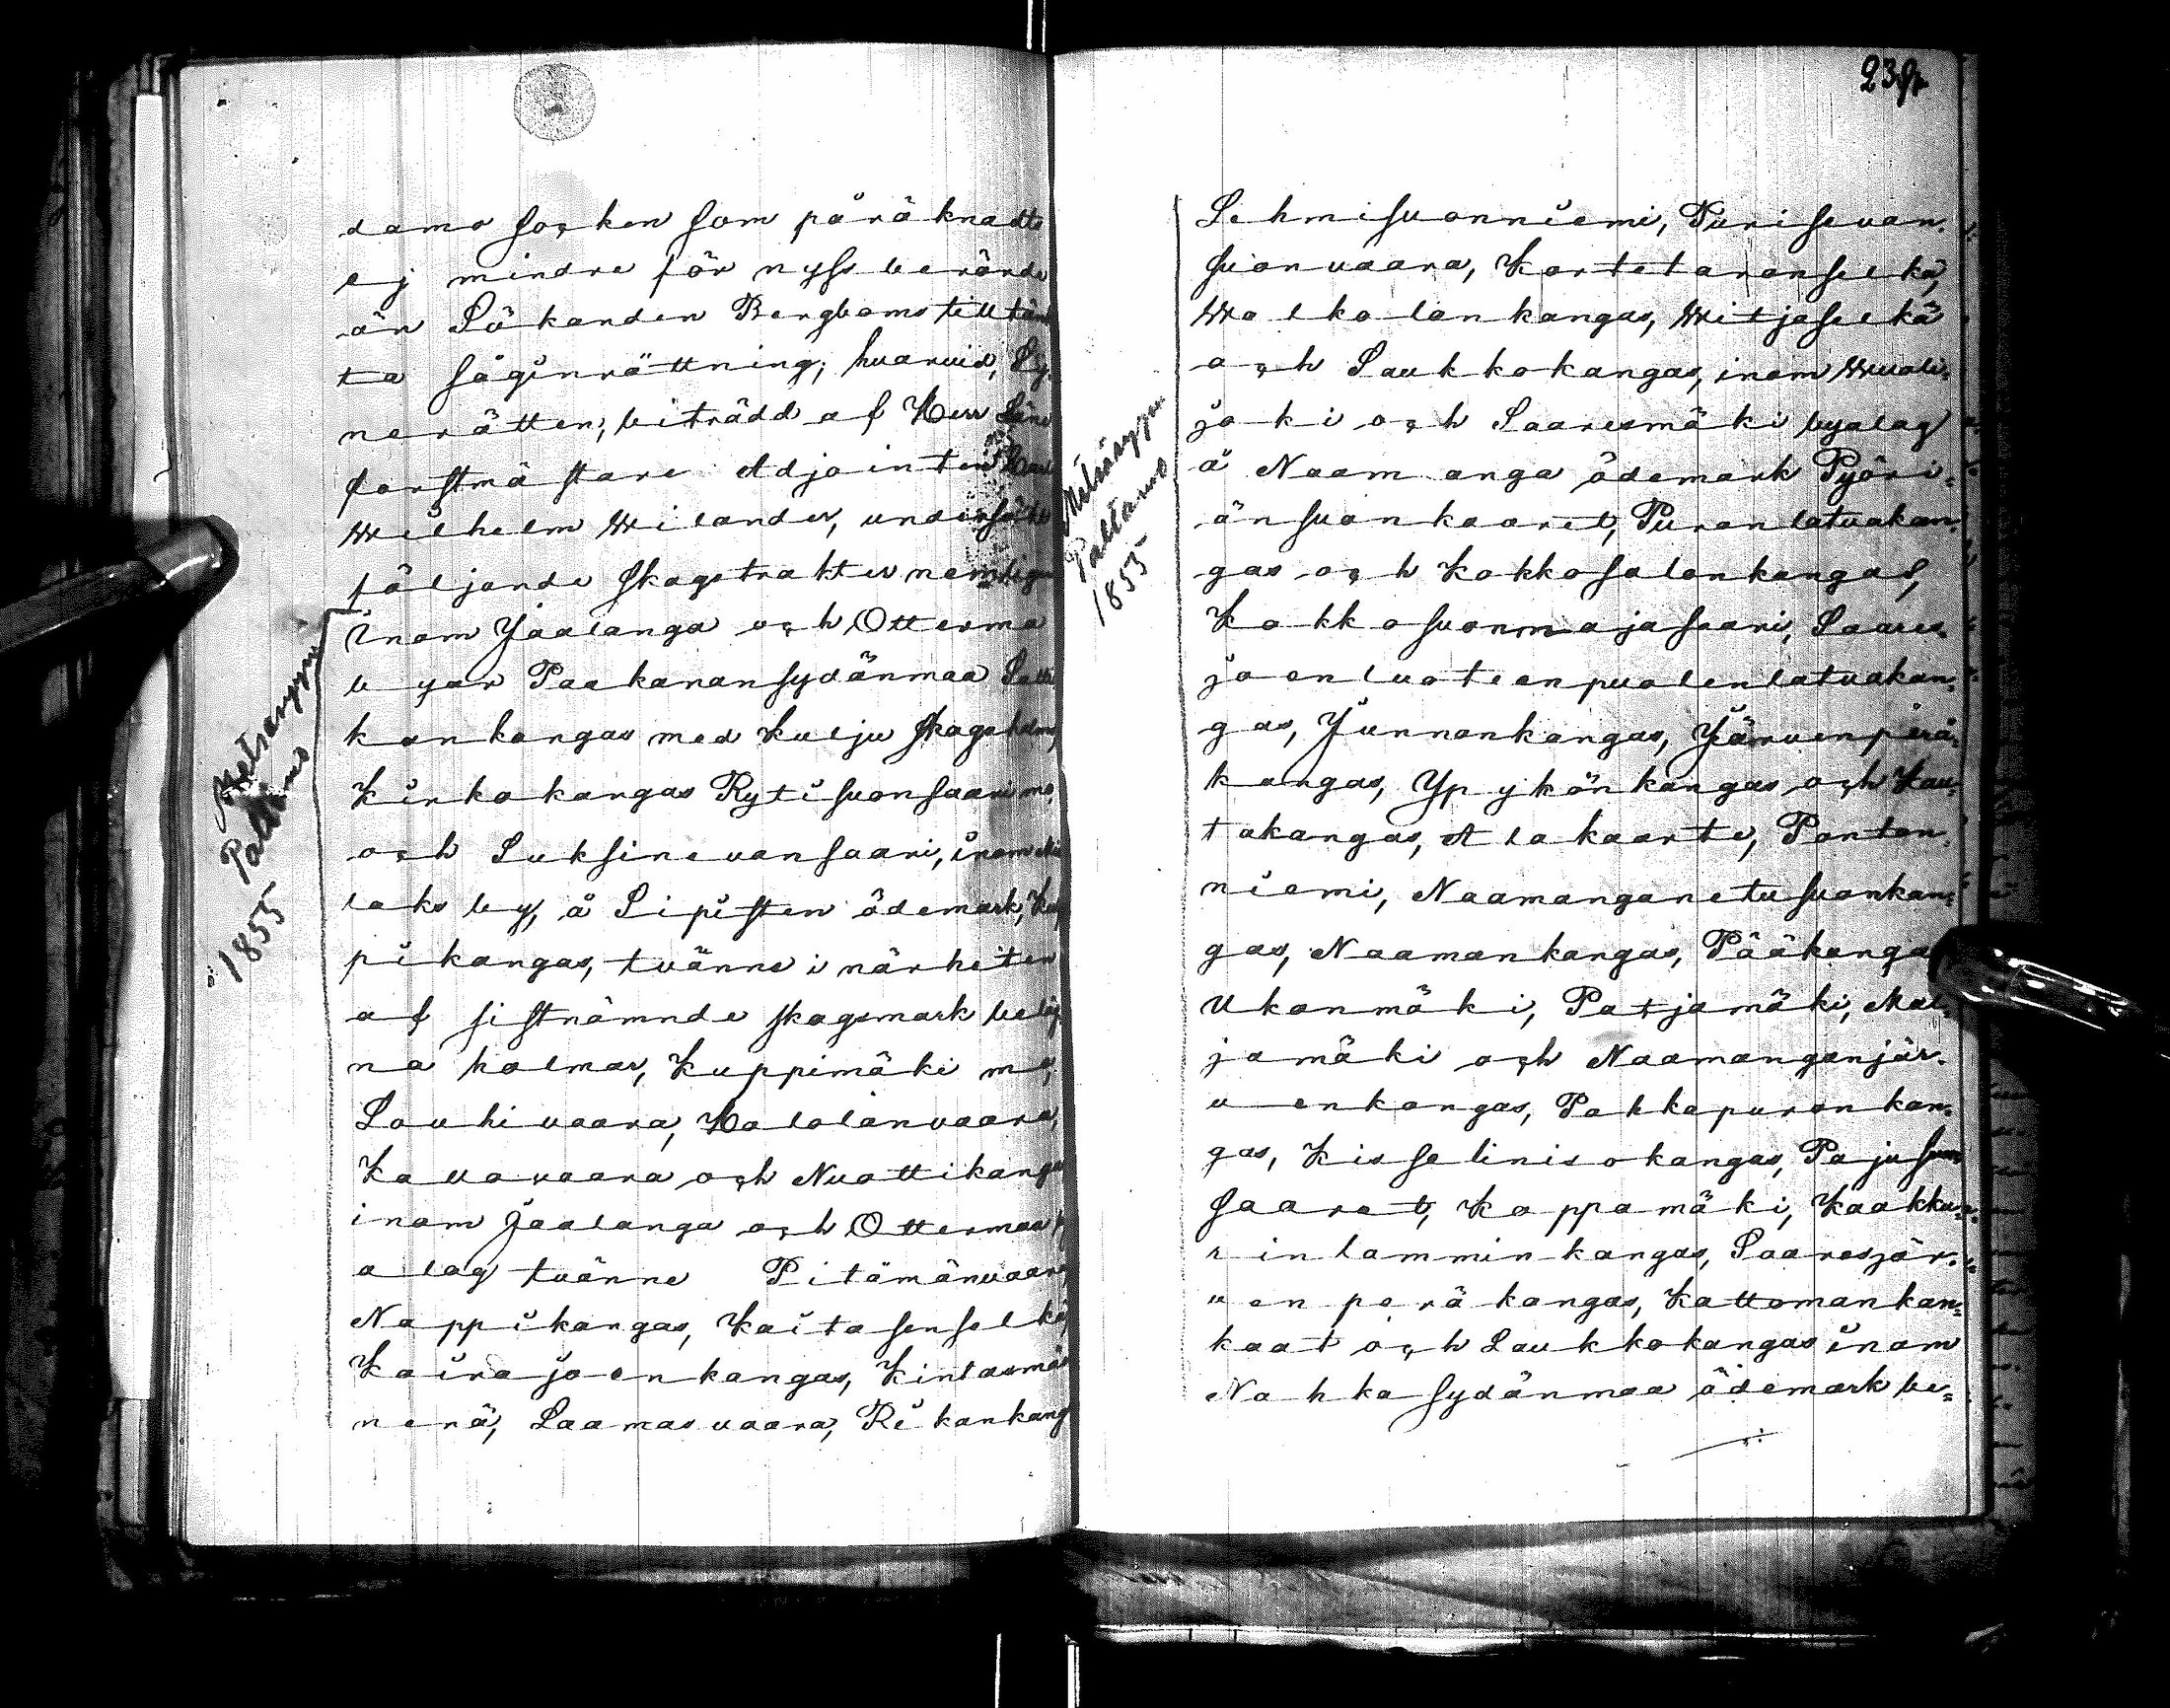 damo socken som påräknadte
ej mindre för nyss berörde
än Sökanden Bergboms tilltänk
ta såginrättning; hvarvid, Sy,
nerätten, biträdd af Herr Läns
forstmästare Adjointen Carl
Wilhelm Wilander, undersökt
följande skogstrakter nemligen
Inom Jaalanga och Otterma
byar Paakanansydänmaa
kankangas med Kulju skogsholme,
Kirkokangas Rytisuonsaari mo,
och Luksinevansaari, inom
laks by, å Sipisten ödemark,
pikangas, tvänne i närheten
af sistnämnde skogsmark beläg
na holmar, Kuppimäki mo,
Louhivaara, Halolanvaara,
Kallovaara och Nuottikangas
inom Jaalanga och Ottermaa by
alag tvänne Pitämänvaara,
Nappikangas, Kaitasenselkä,
Kairajoenkangas, Kintasmä
nenä, Laamasvaara, Rikankang
Metsäsyyni
Paltamo
1855
239
Lehmisuonniemi, Purisevan,
suonvaara, Kortetaronselkä,
Walkolankangas, Witjaselkä
och Laukkokangas, inom Wuoli,
joki och Saaresmäki byalag
å Naamanga ödemark Pyöri,
änsuonkaaret, Puronlatvakan,
gas och Kokkosalonkangas,
Kokkosuonmajasaari, Saares,
joenluoteenpuolenlatvakan,
gas, Junnonkangas, Järvenperä,
kangas, Ypykönkangas och Kau,
takangas, Alakaarte, Pontan,
niemi, Naamanganetusuonkan,
gas, Naamankangas, Pääkangas
Ukonmäki, Patjamäki, Mal,
jamäki och Naamanganjär,
venkangas, Pakkapuronkan,
gas, Kisselinisokangas, Pajusuon
saaret, Koppamäki, Kaakku,
rinlamminkangas, Saaresjär,
venperäkangas, Kattomankan,
kaat och Laukkokangas inom
Nahkasydänmaa ödemark be,
Metsäsyyni
Paltamo
1855